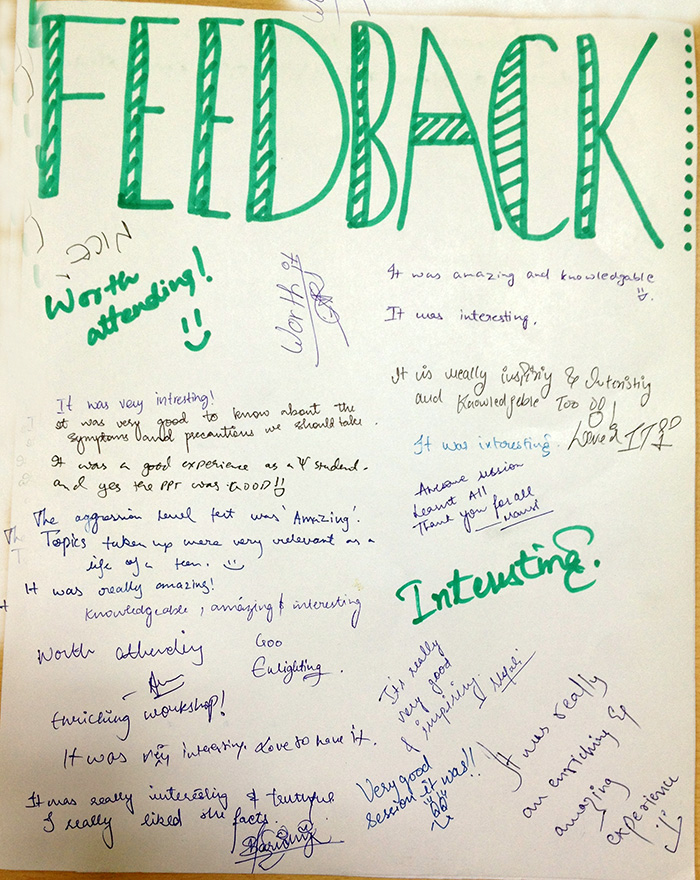 FEEDBACK
Worth
attending!
Worth it
It was amazing and knowledgable
It was interesting.
It is really inspiring & Interistig
and Knowledgable Too
Loved IT
It was interesting.
It was very intresting!
It was very good to know about the
symptoms and precautions we should take.
It was a good experience as a Ψ student.
and yes the PPT was GOOD!!
Awesome session
Learnt All
Thank you for all
The aggression level test was 'Amazing'.
Topics taken up were very relevant as a
life of a teen.
It was really amazing!
Knowledgeable, amazing & interesting
Interesting.
Worth attending
Goo
Enlighting.
Enriching workshop!
It was very interesing. Love to have it.
It's really
very good
& inspiring
Very good
session it was!!
It was really
an enriching &
amazing
experience
It was really interesting &
I really liked the facts.